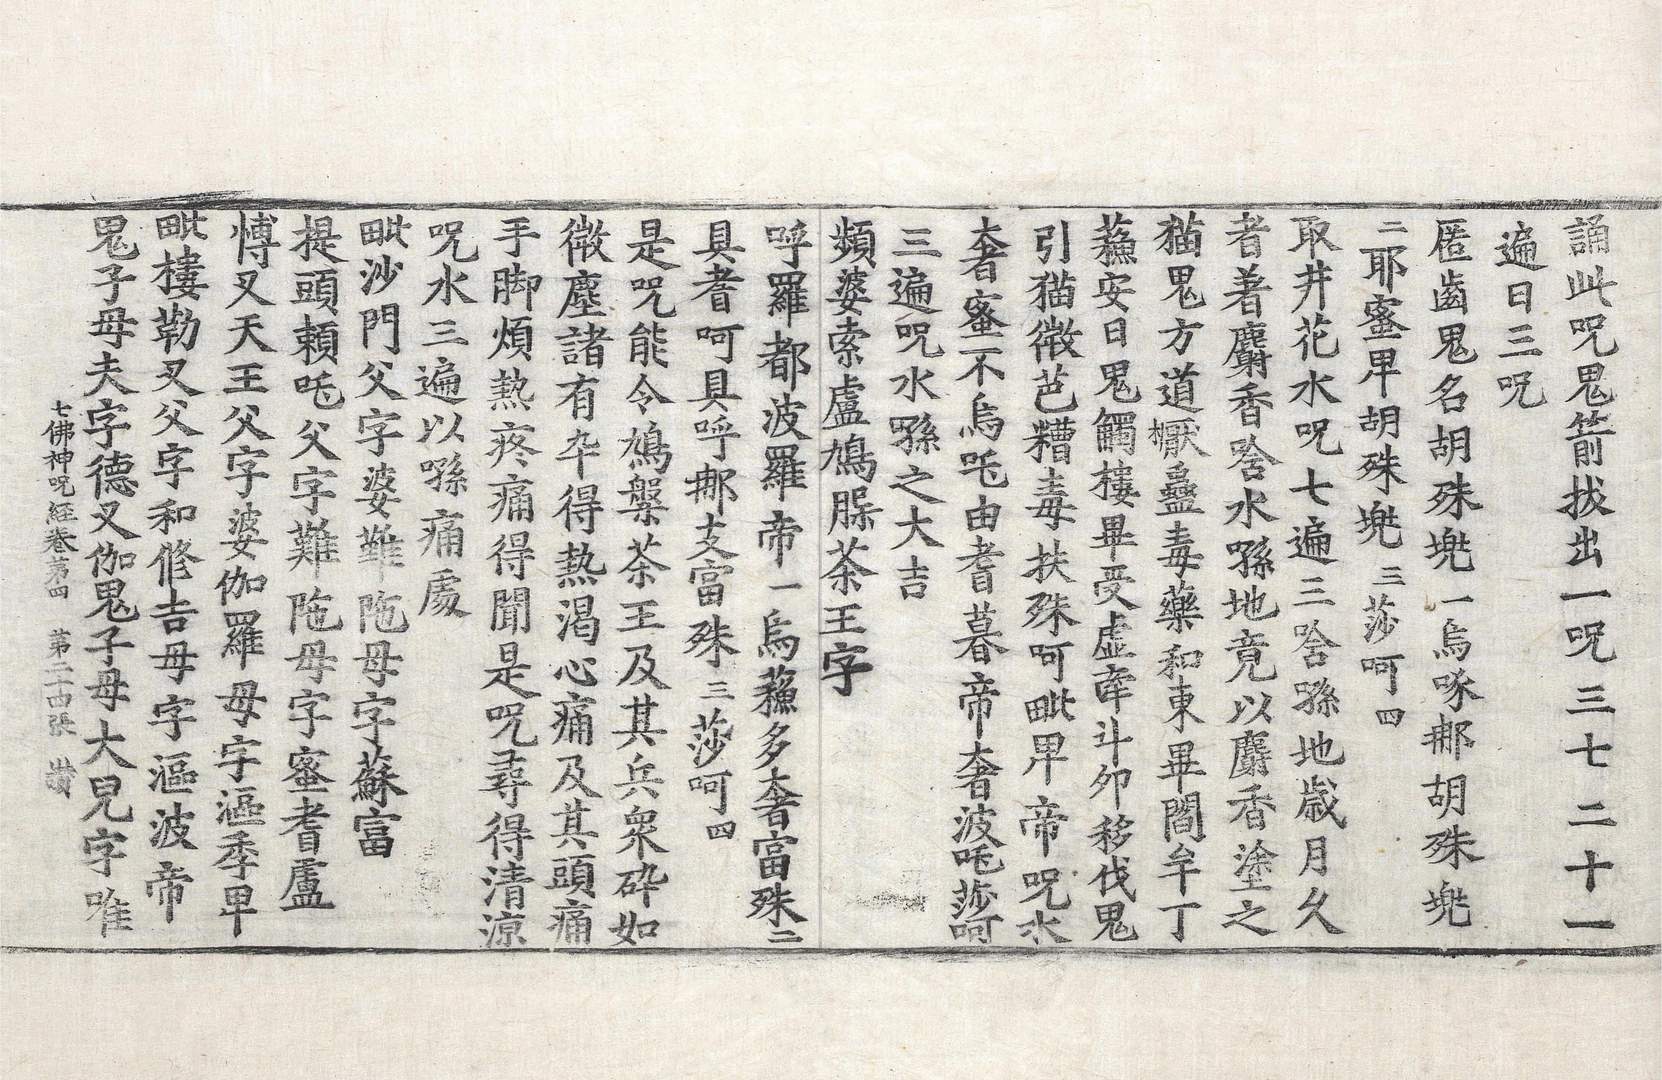 誦此呪鬼箭拔出一呪三七二十一
遍日三呪
匿齒鬼名胡殊兠一烏啄那胡殊兠
二耶蜜卑胡殊兠三莎呵四
取井花水呪七遍三唅㗥地歲月久
者著麝香唅水㗥地竟以麝香塗之
猫鬼方道橛蠱毒藥和東畢閻牟丁
蘓安日鬼觸樓畢受虛牽斗夘移伐鬼
引猫徵芭糟毒扶殊呵毗卑帝呪水
奢蜜不烏吒由耆暮帝奢波吒莎呵
三遍呪水㗥之大吉
頻婆索盧鳩脲茶王字
呼羅都波羅帝一烏蘓多奢富殊二
具耆呵具呼那支富殊三莎呵四
是呪能令鳩槃茶王及其兵衆碎如
微塵諸有卒得熱渴心痛及其頭痛
手脚煩熱疼痛得聞是呪尋得清涼
呪水三遍以㗥痛處
毗沙門父字婆難陁母字蘇富
提頭頼吒父字難陁母字蜜耆盧
愽叉天王父字婆伽羅母字漚季卑
毗樓勒叉父字和修吉母字漚波帝
鬼子母夫字德叉伽鬼子母大皃字唯
七佛神呪経卷第四 第二十四張 讃